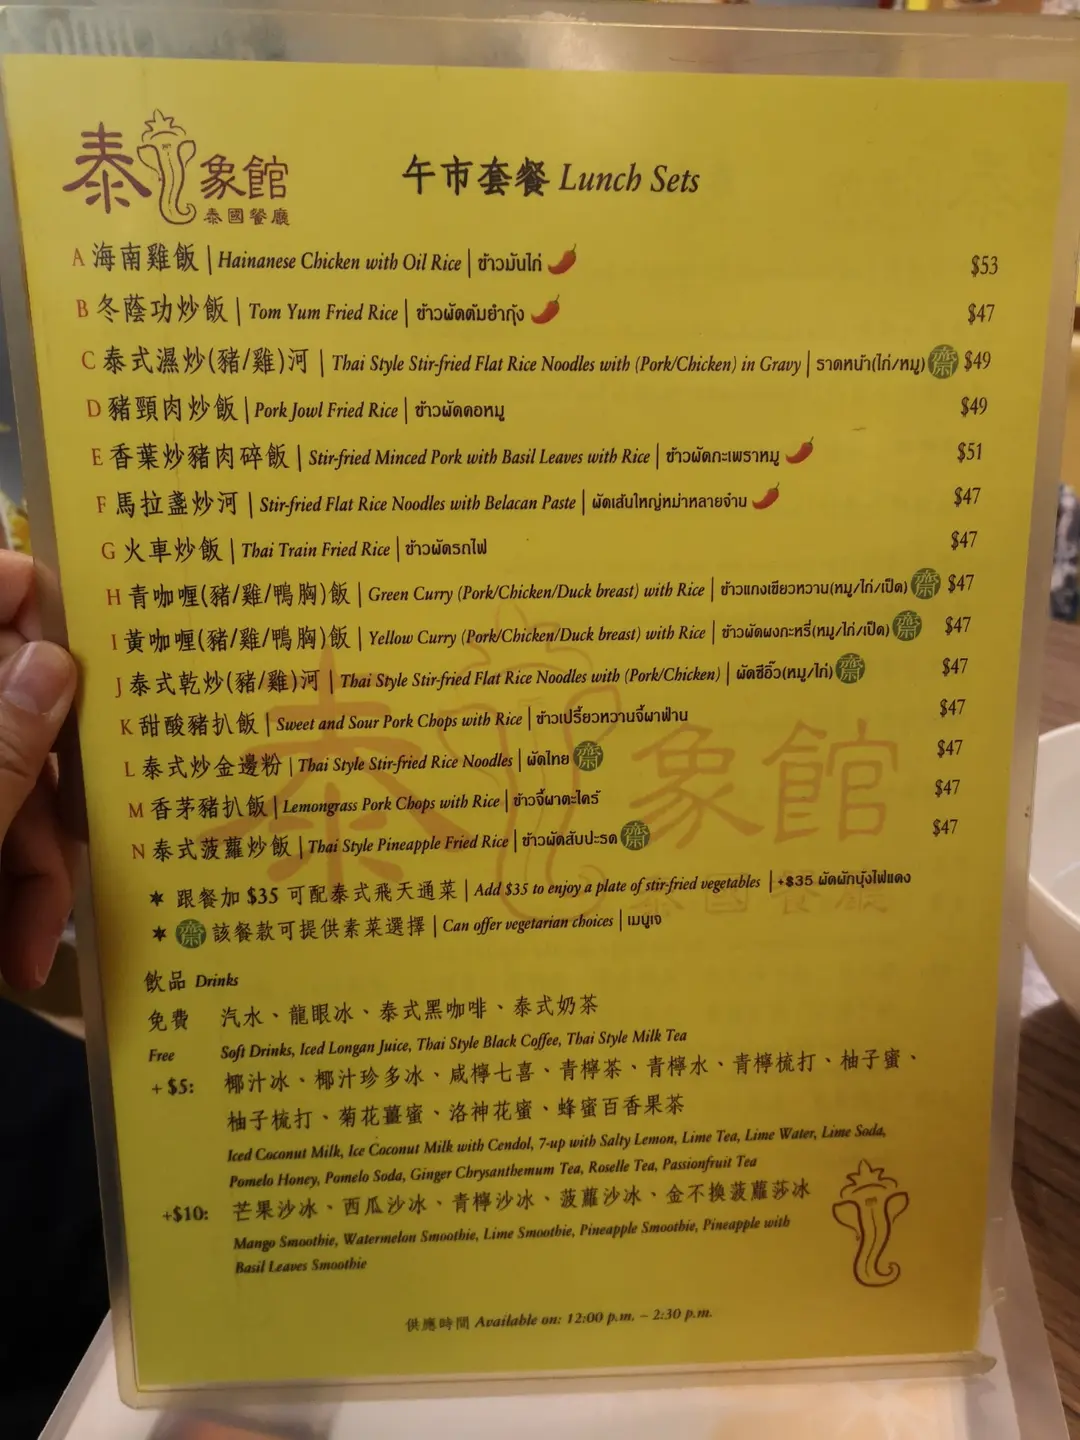 泰象館
泰國餐廳
午市套餐 Lunch Sets
A 海南雞飯 | Hainanese Chicken with Oil Rice | ข้าวมันไก่ $53
B 冬蔭功炒飯 | Tom Yum Fried Rice | ข้าวผัดต้มยำกุ้ง $47
C 泰式濕炒(豬/雞)河 | Thai Style Stir-fried Flat Rice Noodles with (Pork/Chicken) in Gravy | ราดหน้า(ไก่/หมู) 齋 $49
D 豬頸肉炒飯 | Pork Jowl Fried Rice | ข้าวผัดคอหมู $49
E 香葉炒豬肉碎飯 | Stir-fried Minced Pork with Basil Leaves with Rice | ข้าวผัดกะเพราหมู $51
F 馬拉盞炒河 | Stir-fried Flat Rice Noodles with Belacan Paste | ผัดเส้นใหญ่หม่าหลายจ๋าน $47
G 火車炒飯 | Thai Train Fried Rice | ข้าวผัดรถไฟ $47
H 青咖喱(豬/雞/鴨胸)飯 | Green Curry (Pork/Chicken/Duck breast) with Rice | ข้าวแกงเขียวหวาน(หมู/ไก่/เป็ด) 齋 $47
I 黃咖喱(豬/雞/鴨胸)飯 | Yellow Curry (Pork/Chicken/Duck breast) with Rice | ข้าวผัดผงกะหรี่(หมู/ไก่/เป็ด) 齋 $47
J 泰式乾炒(豬/雞)河 | Thai Style Stir-fried Flat Rice Noodles with (Pork/Chicken) | ผัดซีอิ๊ว(หมู/ไก่) 齋 $47
K 甜酸豬扒飯 | Sweet and Sour Pork Chops with Rice | ข้าวเปรี้ยวหวานจี้ผาฟ่าน $47
L 泰式炒金邊粉 | Thai Style Stir-fried Rice Noodles | ผัดไทย 齋 $47
M 香茅豬扒飯 | Lemongrass Pork Chops with Rice | ข้าวจี้ผาตะไคร้ $47
N 泰式菠蘿炒飯 | Thai Style Pineapple Fried Rice | ข้าวผัดสับปะรด 齋 $47
✶ 跟餐加 $35 可配泰式飛天通菜 | Add $35 to enjoy a plate of stir-fried vegetables | +$35 ผัดผักบุ้งไฟแดง
✶ 齋 該餐款可提供素菜選擇 | Can offer vegetarian choices | เมนูเจ
飲品 Drinks
免費 汽水、龍眼冰、泰式黑咖啡、泰式奶茶
Free Soft Drinks, Iced Longan Juice, Thai Style Black Coffee, Thai Style Milk Tea
+ $5: 椰汁冰、椰汁珍多冰、咸檸七喜、青檸茶、青檸水、青檸梳打、柚子蜜、
柚子梳打、菊花薑蜜、洛神花蜜、蜂蜜百香果茶
Iced Coconut Milk, Ice Coconut Milk with Cendol, 7-up with Salty Lemon, Lime Tea, Lime Water, Lime Soda,
Pomelo Honey, Pomelo Soda, Ginger Chrysanthemum Tea, Roselle Tea, Passionfruit Tea
+$10: 芒果沙冰、西瓜沙冰、青檸沙冰、菠蘿沙冰、金不換菠蘿莎冰
Mango Smoothie, Watermelon Smoothie, Lime Smoothie, Pineapple Smoothie, Pineapple with
Basil Leaves Smoothie
供應時間 Available on: 12:00 p.m. – 2:30 p.m.